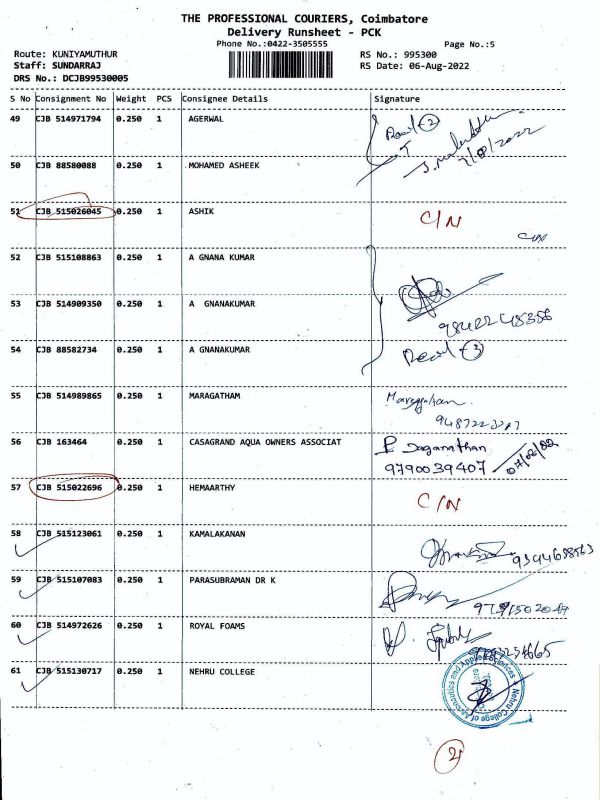 THE PROFESSIONAL COURIERS, Coimbatore
Delivery Runsheet - PCK
Phone No.:0422-3505555 Page No.:5
Route: KUNIYAMUTHUR RS No.: 995300
Staff: SUNDARRAJ RS Date: 06-Aug-2022
DRS No.: DCJB99530005
S No Consignment No Weight PCS Consignee Details Signature
49 CJB 514971794 0.250 1 AGERWAL
50 CJB 88580088 0.250 1 MOHAMED ASHEEK
51 CJB 515026045 0.250 1 ASHIK C/N
C/N
52 CJB 515108863 0.250 1 A GNANA KUMAR
53 CJB 514909350 0.250 1 A GNANAKUMAR
98422 48356
54 CJB 88582734 0.250 1 A GNANAKUMAR
55 CJB 514989865 0.250 1 MARAGATHAM
56 CJB 163464 0.250 1 CASAGRAND AQUA OWNERS ASSOCIAT P Jaganathan
9790039407
57 CJB 515022696 0.250 1 HEMAARTHY C/N
58 CJB 515123061 0.250 1 KAMALAKANAN
59 CJB 515107083 0.250 1 PARASUBRAMAN DR K
60 CJB 514972626 0.250 1 ROYAL FOAMS
61 CJB 515130717 0.250 1 NEHRU COLLEGE
Nehru College of Aeronautics and Applied Sciences
2